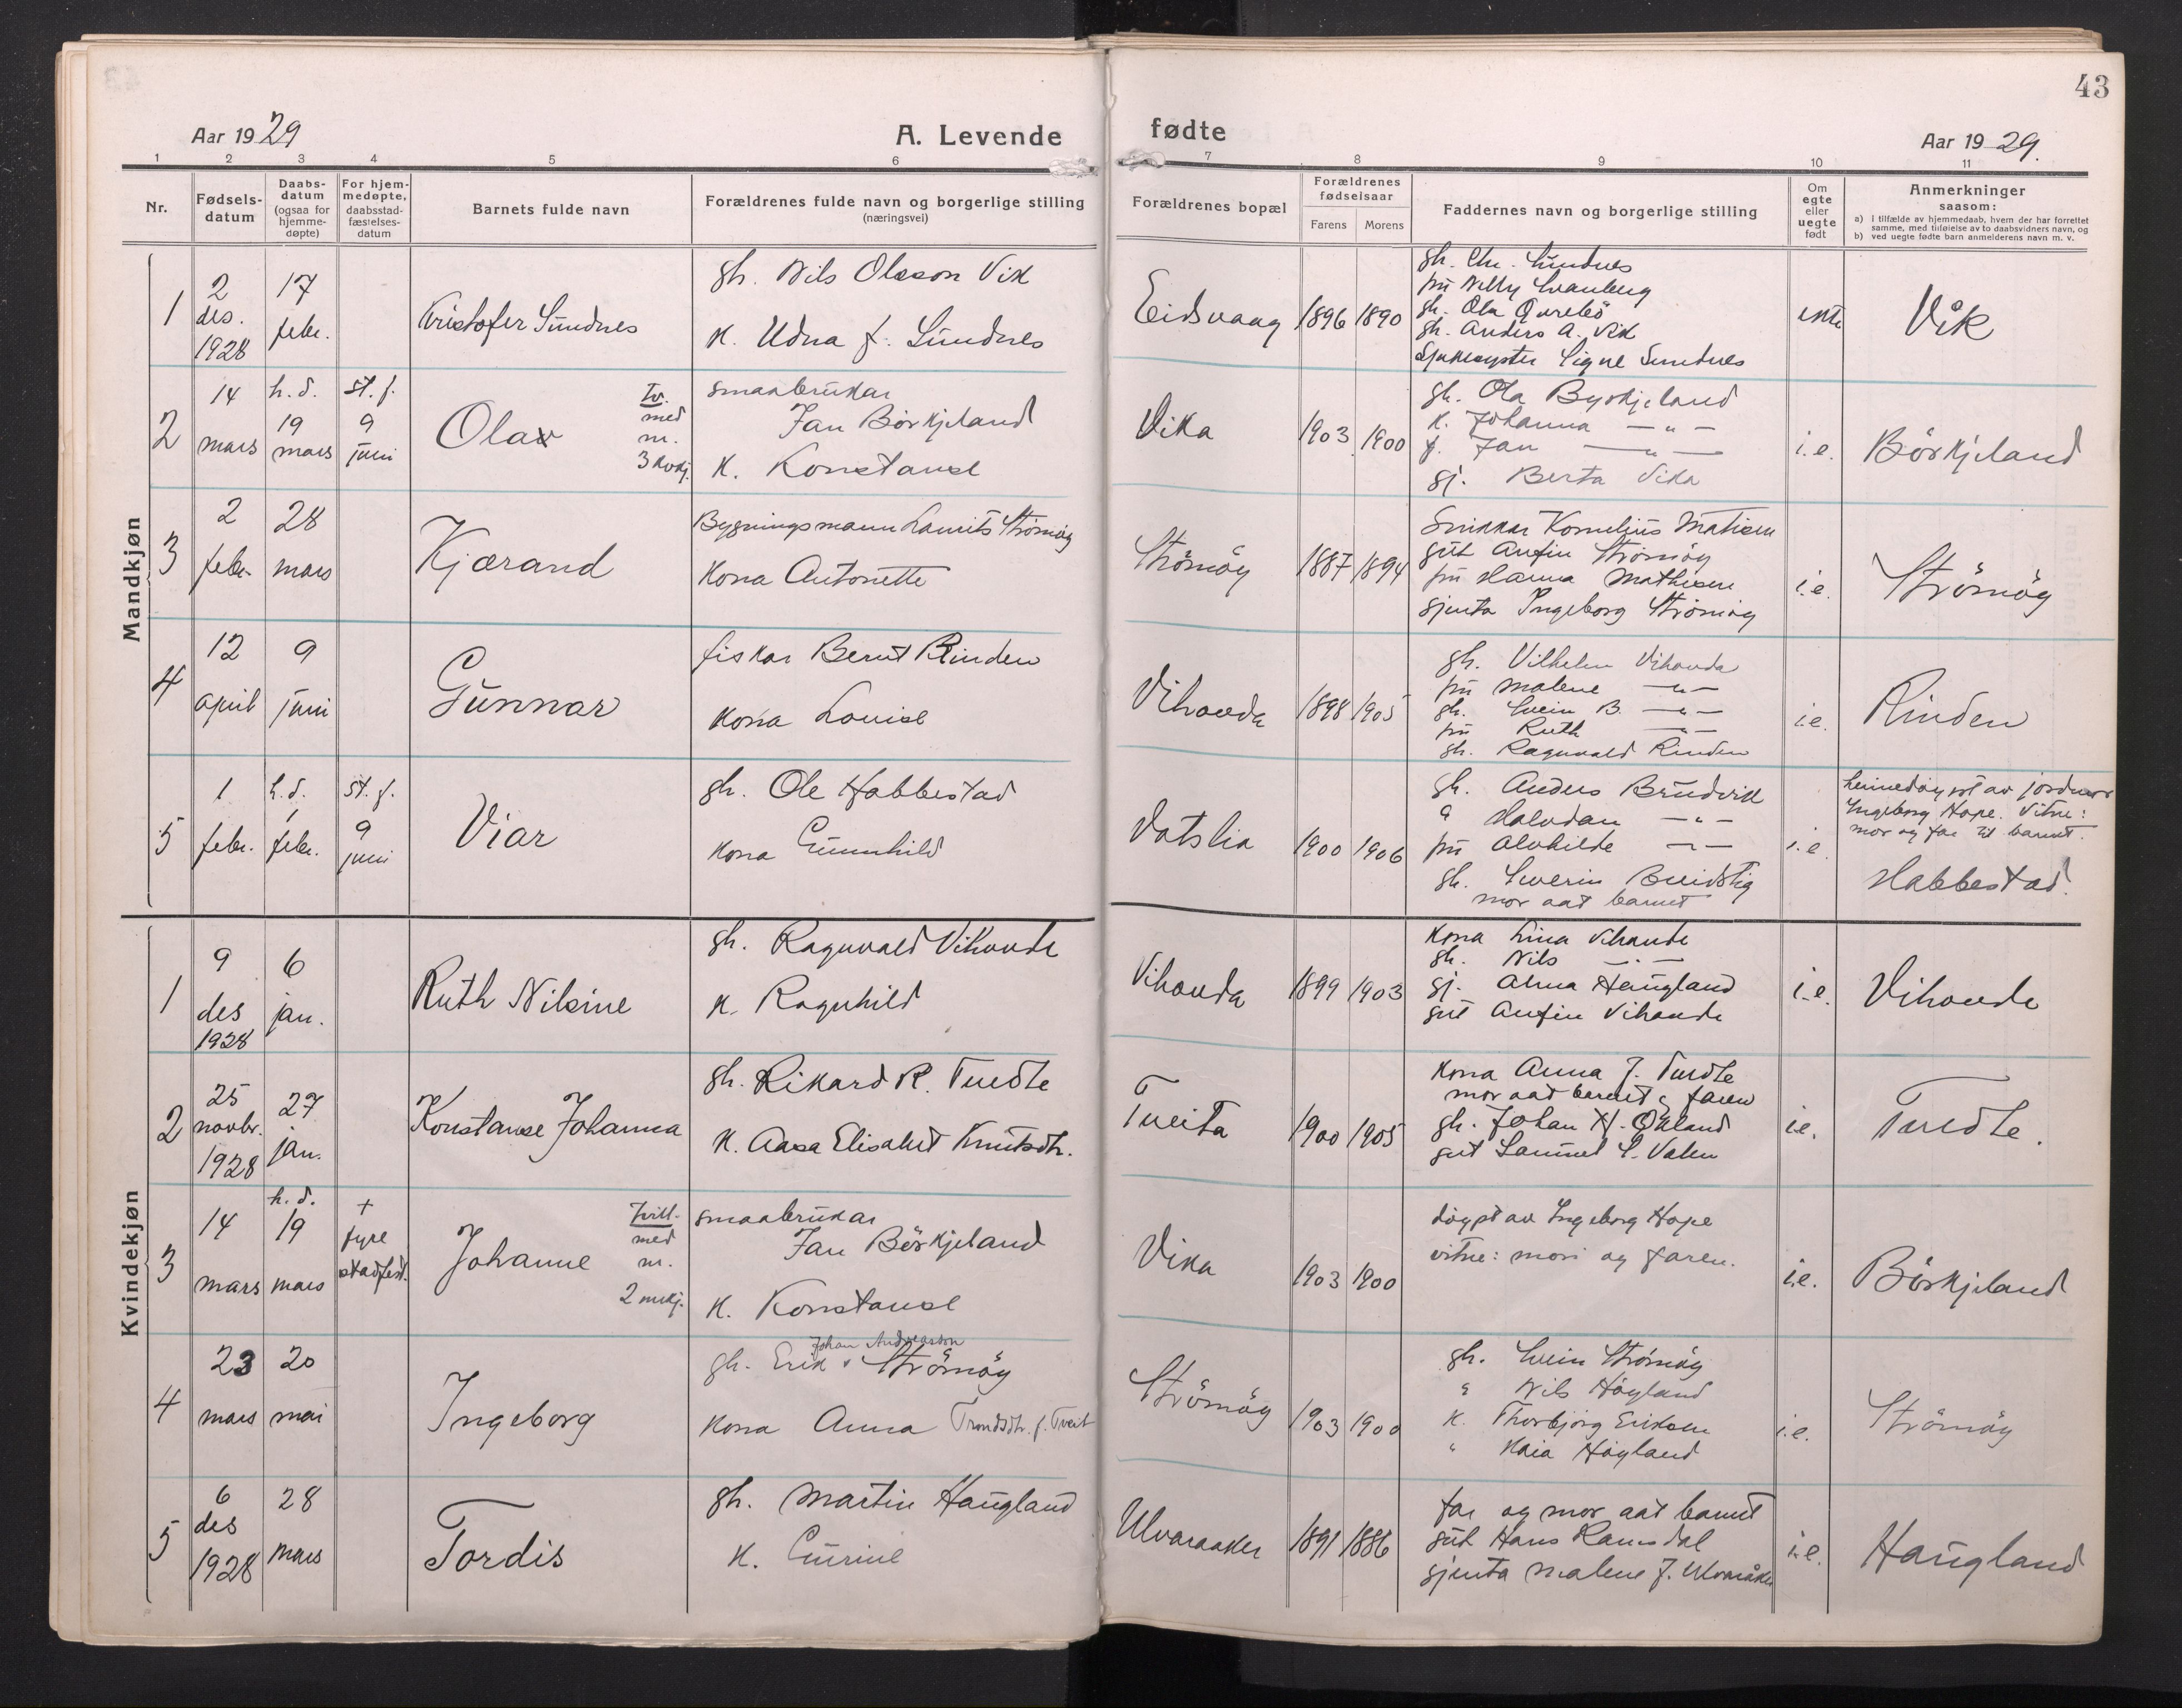 43
Aar 1929
A. Levende
fødte
Aar 1929.
1 2 3 4 5 6 7 8 9 10 11
Nr.
Fødsels-
datum
Daabs-
datum
(ogsaa for
hjemme-
døpte)
For hjem-
medøpte,
daabsstad-
fæstelses-
datum
Barnets fulde navn
Forældrenes fulde navn og borgerlige stilling
(næringsvei)
Forældrenes bopæl
Forældrenes
fødselsaar
Farens Morens
Faddernes navn og borgerlige stilling
Om
egte
eller
uegte
født
Anmerkninger
saasom:
a) i tilfælde av hjemmedaab, hvem der har forrettet
samme, med tilføielse av to daabsvidners navn, og
b) ved uegte fødte barn anmelderens navn m. v.
Mandkjøn
1
2
des.
1928
17
febr.
Kristofer Sundnes
gh. Nils Olsson Vik
k. Udna f. Sundnes
Eidsvaag
1896 1890
gh. Chr. Sundnes
fru Nelly Svanberg
gh. Ola Qvrebö
gh. Anders A. Vik
Sjuksyster Signe Sundnes
Vik
2
14
mars
h.d.
19
mars
st. f.
9
juni
Olav
tv.
med
nr.
3 kvkj.
smaabrukar
Jan Börkjeland
k. Konstanse
Vika
1903 1900
gh. Ola Byrkjeland
k. Johanna — " —
g. Jan — " —
gj. Berta Vika
i.e.
Börkjeland
3
2
febr.
28
mars
Kjærand
Bygningsmann Laurits Strömöy
Kona Antonette
Strömöy
1887 1894
Snikkar Kornelius Matisen
gut Anfin Strömöy
fru Hanna Mathisen
gjenta Ingeborg Strömöy
i.e.
Strömöy
4
12
april
9
juni
Gunnar
fiskar Bernt Rinden
kona Louise
Vihovda
1898 1905
gh. Vilhelm Vihovda
fru Malene — " —
gh. Svein B. — " —
fru Ruth — " —
gh. Ragnvald Rinden
i.e.
Rinden
5
1
febr.
h.d.
1
febr.
st. f.
9
juni
Viar
gh. Ole Habbestad
kona Gunnhild
Vatslia
1900 1906
gh. Anders Brudvik
" Halvdan — " —
fru Alvhilde — " —
gh. Severin Breidstig
mor aat barnet
i.e.
heimedöypt av jordmor
Ingeborg Hope. Vitne:
mor og far til barnet.
Habbestad.
Kvindekjøn
1
9
des
1928
6
jan.
Ruth Nilsine
gh. Ragnvald Vihovde
k. Ragnhild
Vihovda
1899 1903
Kona Lina Vihovde
gh. Nils — " —
gj. Alma Haugland
gut Anfin Vihovde
i.e.
Vihovde
2
25
novbr.
1928
27
jan.
Konstanse Johanna
gh. Rikard R. Tvedte
k. Aasa Elisabet Knutsdtr.
Tveita
1900 1905
Kona Anna J. Tvedte
mor aat barnet og faren
gh. Johan H. Økland
gut Samuel S. Valen
i.e.
Tvedte.
3
14
mars
h. d.
19
mars
+
fyre
stadfest.
Johanne
Tvill.
med
nr.
2 mkj.
smaabrukar
Jan Börkjeland
k. Konstanse
Vika
1903 1900
döypt av Ingeborg Hope
vitne: mori og faren.
i.e.
Börkjeland
4
23
mars
20
mai
Ingeborg
Johan Andreasson
gh. Erik Strömöy
kona Anna Trondsdtr. f. Tveit
Strömöy
1903 1900
gh. Svein Strömöy
" Nils Höyland
k. Thorbjörg Eriksen
" Kaia Höyland
i.e.
Strömöy
5
6
des
1928
28
mars
Tordis
gh. Martin Haugland
k. Gurine
Ulvaraaker
1891 1886
far og mor aat barnet
gut Hans Ramsdal
gjenta Malene J. Ulvaråker
i.e.
Haugland